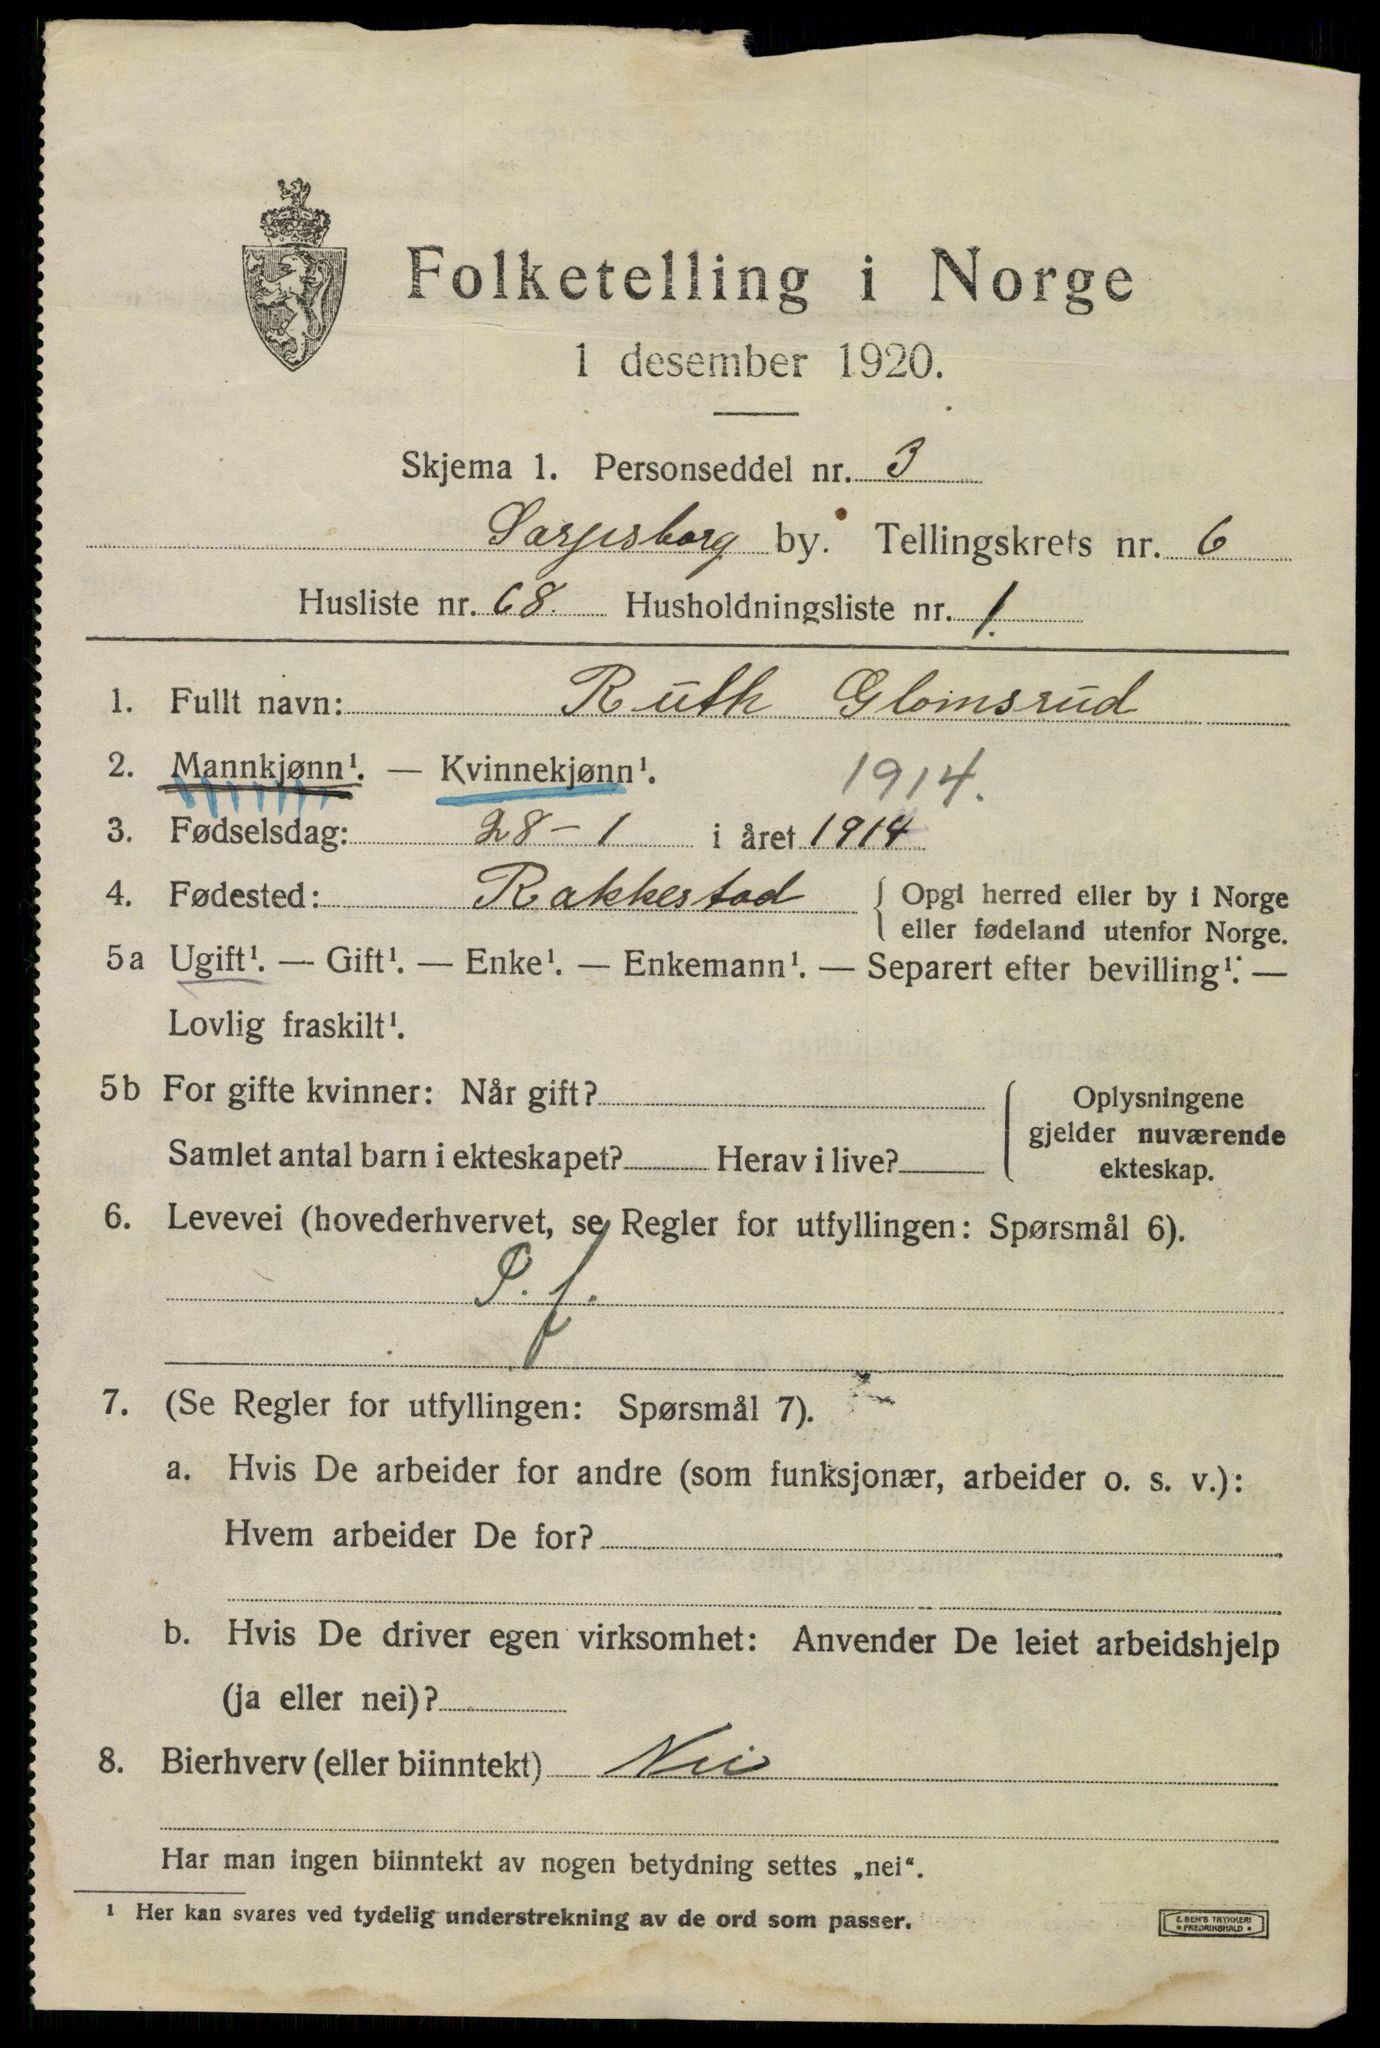 Folketelling i Norge
1 desember 1920.
Skjema 1. Personseddel nr. 3
Sarpsborg by. Tellingskrets nr. 6
Husliste nr. 68. Husholdningsliste nr. 1.
1. Fullt navn: Ruth Glomsrud
2. Mannkjønn¹. — Kvinnekjønn¹. 1914.
3. Fødselsdag: 28-1 i året 1914
4. Fødested: Rakkestad { Opgi herred eller by i Norge
eller fødeland utenfor Norge.
5a Ugift¹. — Gift¹. — Enke¹. — Enkemann¹. — Separert efter bevilling¹. —
Lovlig fraskilt¹.
5b For gifte kvinner: Når gift?
Samlet antal barn i ekteskapet? Herav i live?
Oplysningene
gjelder nuværende
ekteskap.
6. Levevei (hovederhvervet, se Regler for utfyllingen: Spørsmål 6).
P. f.
7. (Se Regler for utfyllingen: Spørsmål 7).
a. Hvis De arbeider for andre (som funksjonær, arbeider o. s. v.):
Hvem arbeider De for?
b. Hvis De driver egen virksomhet: Anvender De leiet arbeidshjelp
(ja eller nei)?
8. Bierhverv (eller biinntekt) Nei
Har man ingen biinntekt av nogen betydning settes „nei“.
¹ Her kan svares ved tydelig understrekning av de ord som passer.
E. SEM'S TRYKKERI
* FREDRIKSHALD *